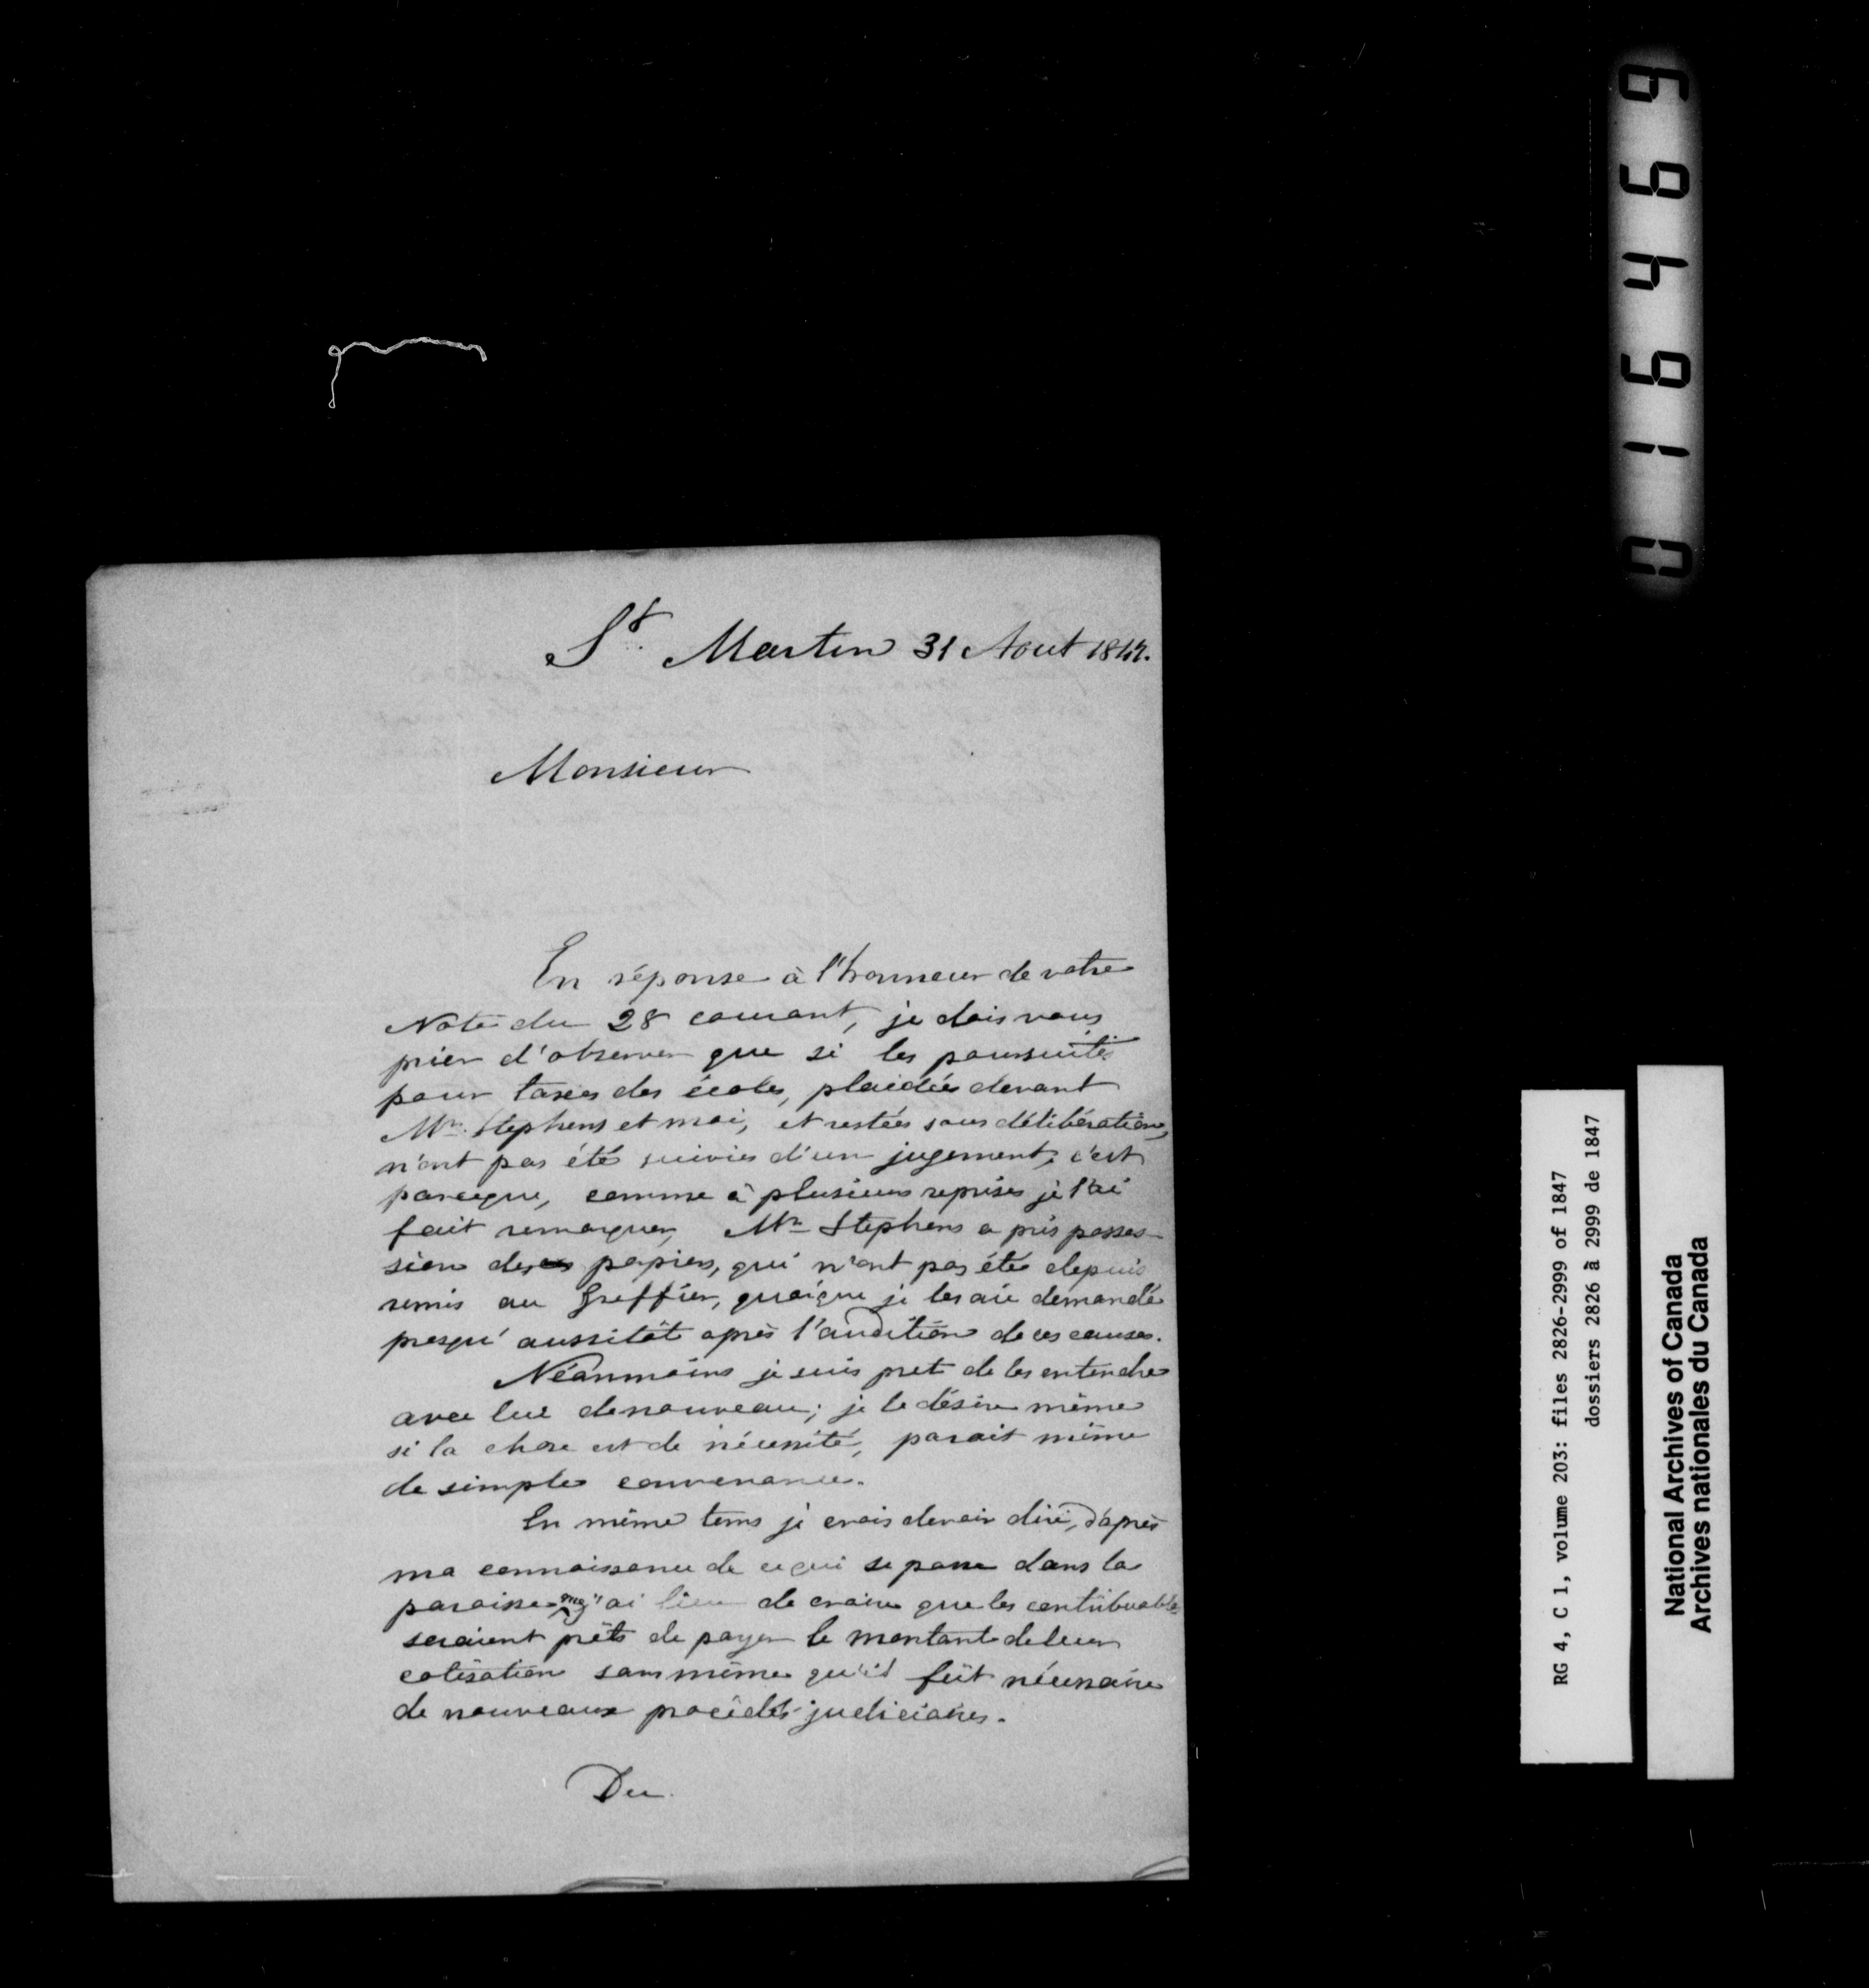 St. Martin 31 Aout 1847.
Monsieur
En réponse à l'honneur de votre
Note du 28 courant, je dois vous
prier d'observer que si les poursuites
pour taxes des écoles, plaidées devant
Mr. Stephens et moi, et restées sous délibération,
n'ont pas été suivies d'un jugement, c'est
parceque, comme à plusieurs reprises je l'ai
fait remarquer, Mr Stephens a pris posses-
sion des papiers, qui n'ont pas été depuis
remis au Greffier, quoique je les aie demandé
presqu'aussitôt après l'audition de ces causes.
Néanmoins je suis pret de les entendre
avec lui denouveau; je le désire même
si la chose est de nécessité, parait même
de simple convenance.
En même tems je crois devoir dire, d'après
ma connaissance de ce qui se passe dans la
paroisse j'ai lieu de croire que les contribuables
seraient prêts de payer le montant de leur
cotisation sans même qu'il fût nécessaire
de nouveaux procédés judiciaires.
Du
016469
RG 4, C 1, volume 203: files 2826-2999 of 1847
dossiers 2826 à 2999 de 1847
National Archives of Canada
Archives nationales du Canada